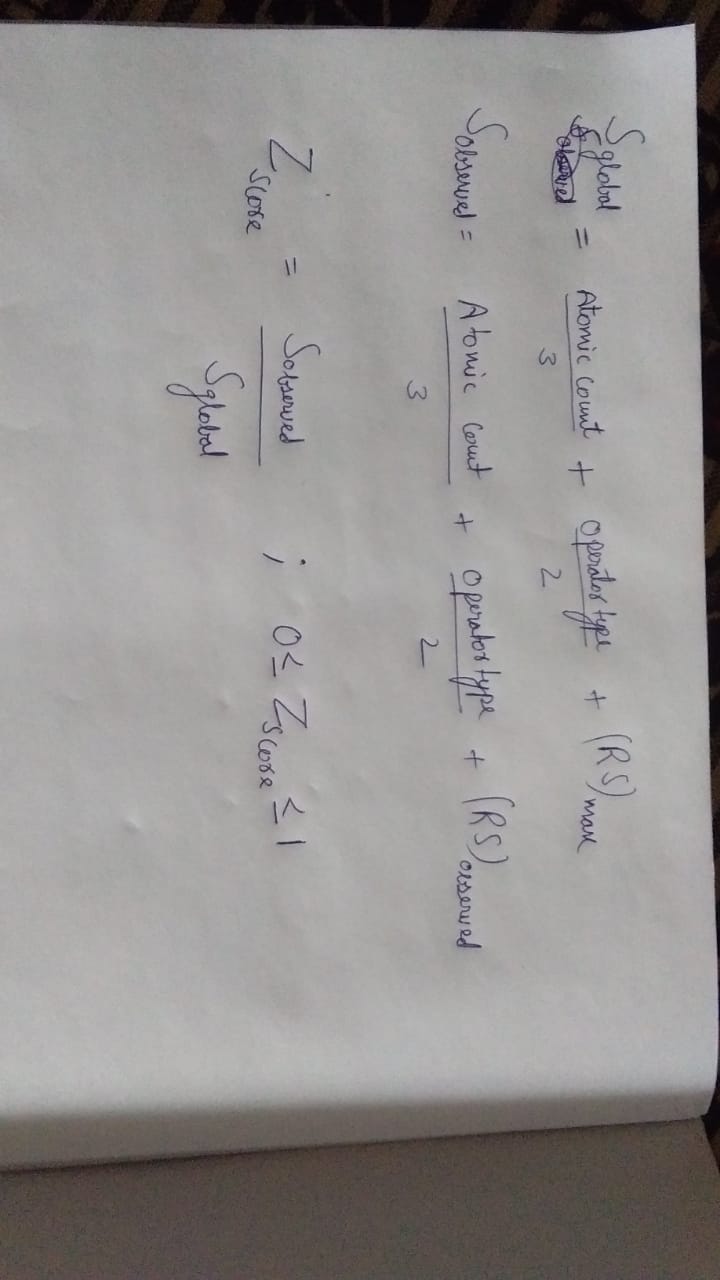 S global = Atomic count / 3 + operator type / 2 + (RS) max
S observed = Atomic count / 3 + operator type / 2 + (RS) observed
Z score = S observed / S global ; 0 ≤ Z score ≤ 1